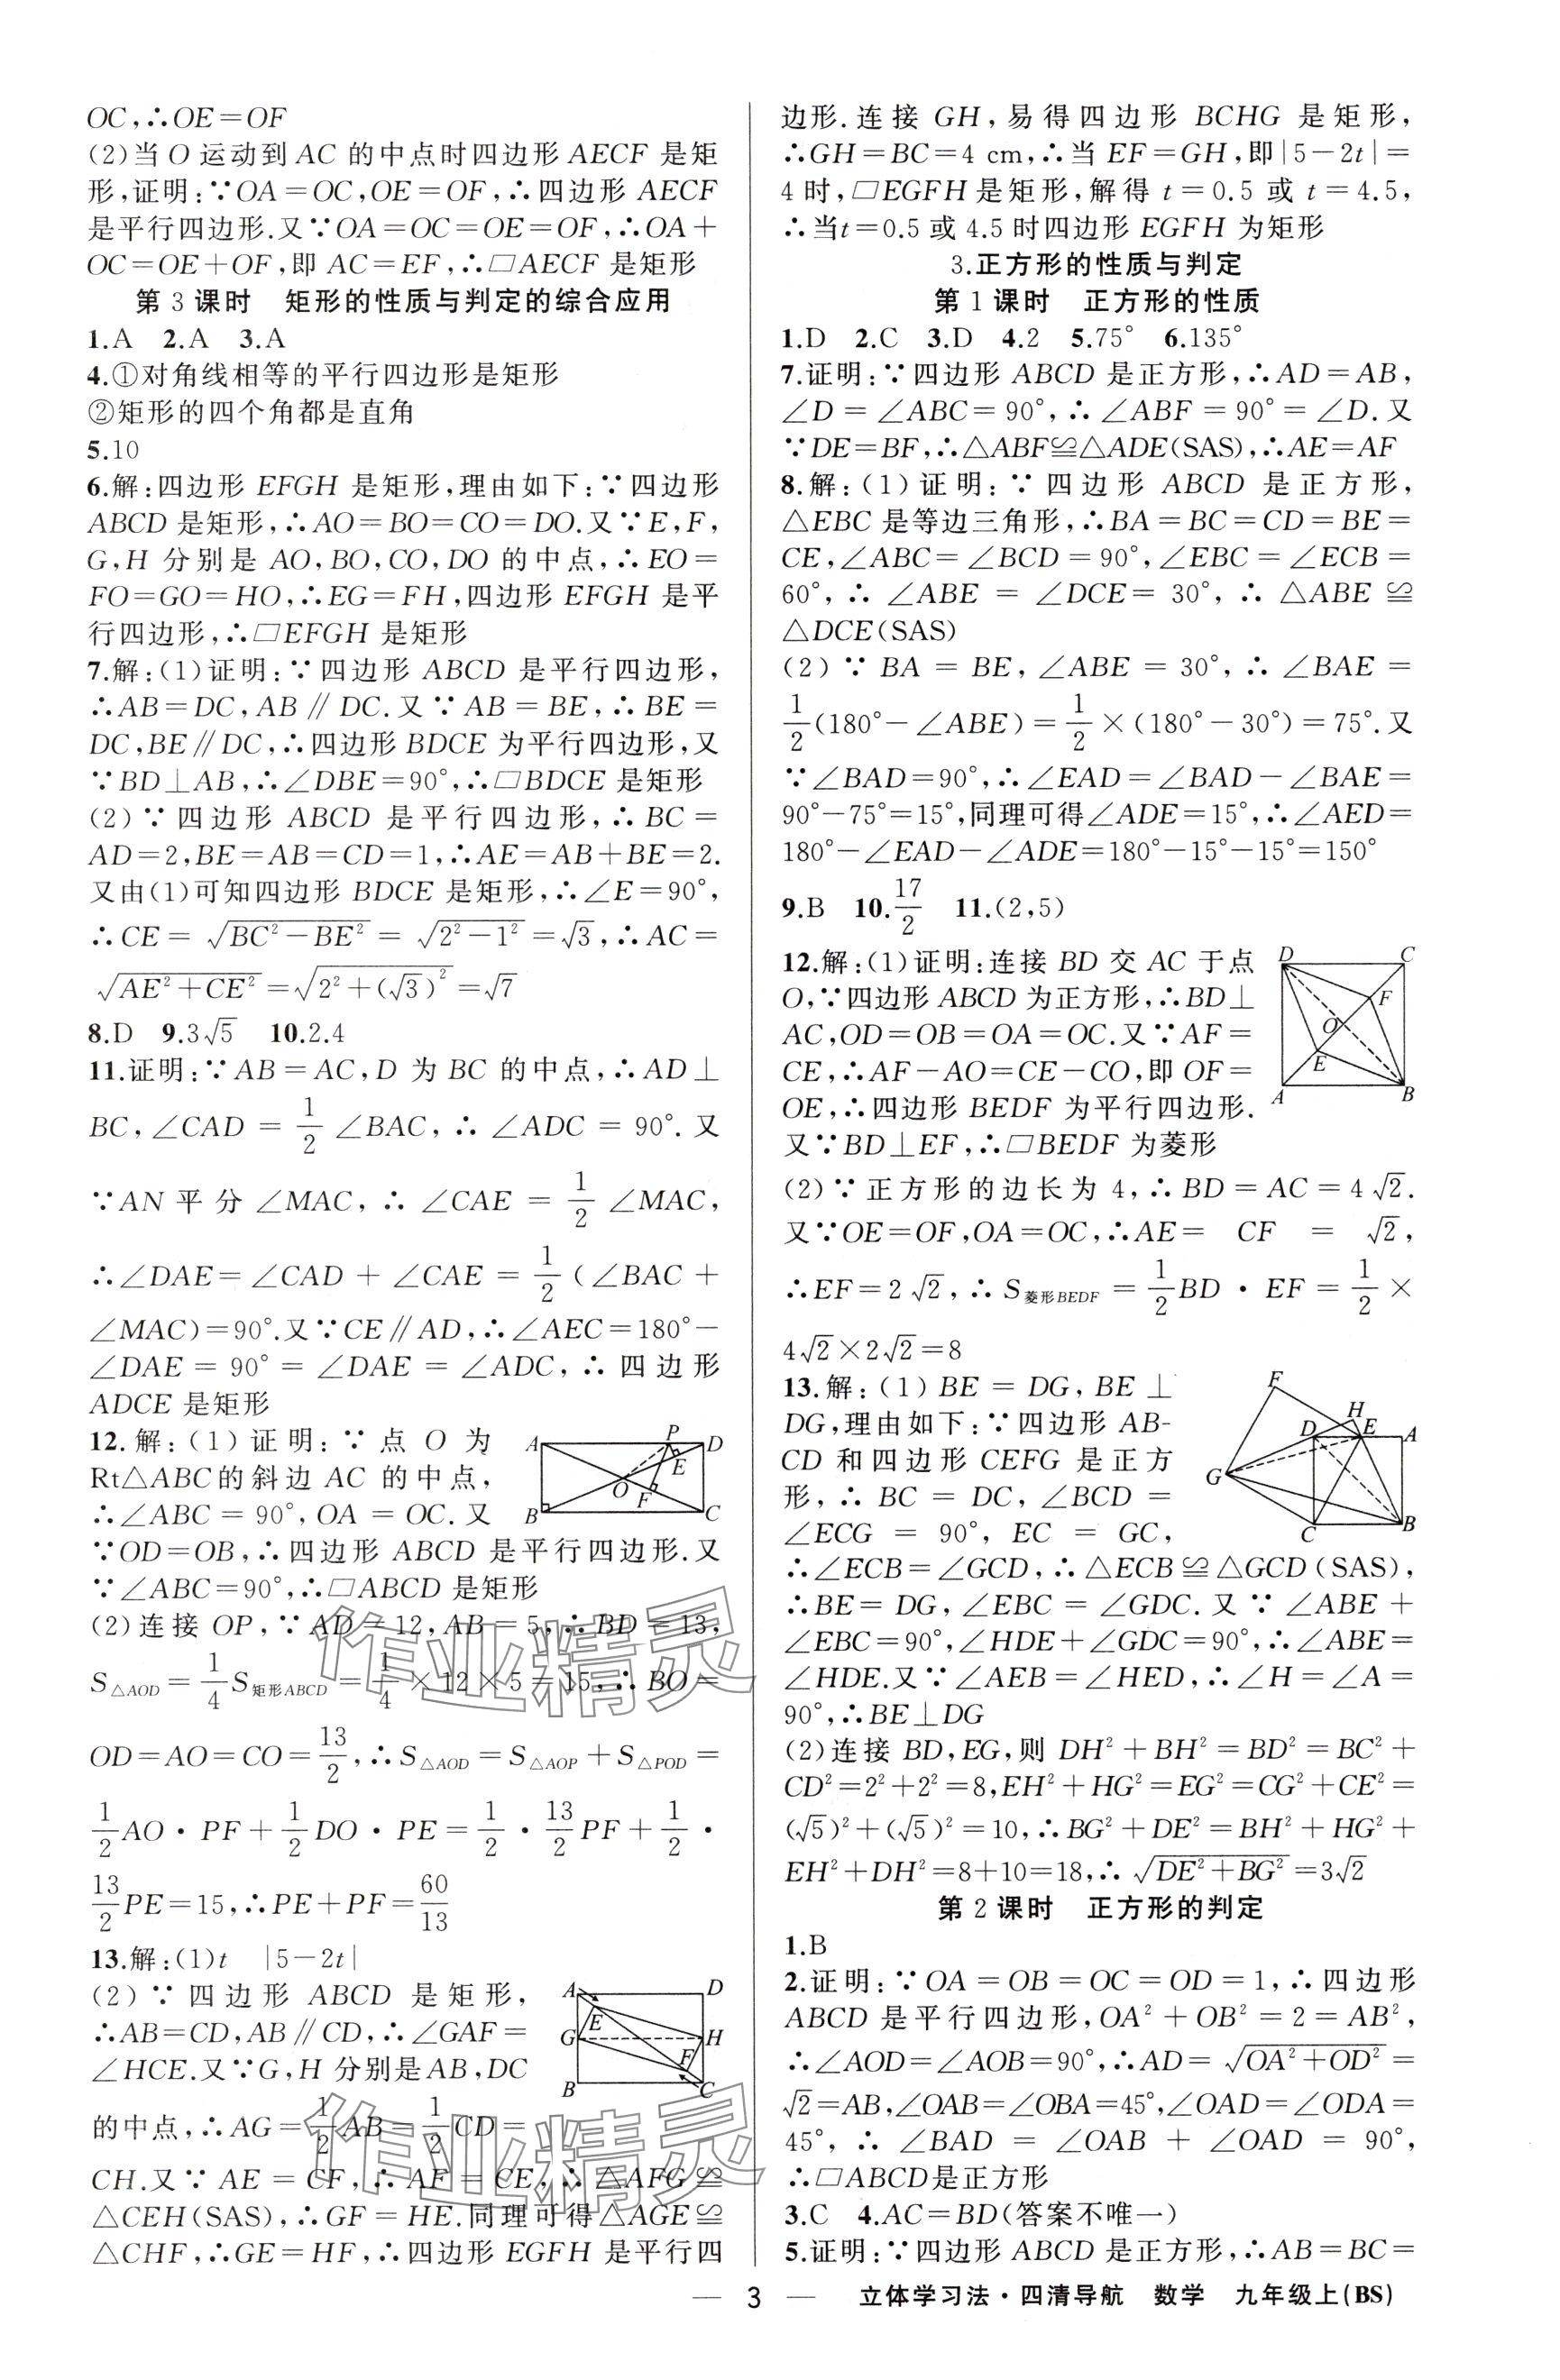 OC,∴OE=OF
(2)当O运动到AC的中点时四边形AECF是矩
形,证明:∵OA=OC,OE=OF,∴四边形AECF
是平行四边形.又∵OA=OC=OE=OF,∴OA+
OC=OE+OF,即AC=EF,∴□AECF是矩形
第3课时 矩形的性质与判定的综合应用
1.A 2.A 3.A
4.①对角线相等的平行四边形是矩形
②矩形的四个角都是直角
5.10
6.解:四边形EFGH是矩形,理由如下:∵四边形
ABCD是矩形,∴AO=BO=CO=DO.又∵E,F,
G,H分别是AO,BO,CO,DO的中点,∴EO=
FO=GO=HO,∴EG=FH,四边形EFGH是平
行四边形,∴□EFGH是矩形
7.解:(1)证明:∵四边形ABCD是平行四边形,
∴AB=DC,AB∥DC.又∵AB=BE,∴BE=
DC,BE∥DC,∴四边形BDCE为平行四边形,又
∵BD⊥AB,∴∠DBE=90°,∴□BDCE是矩形
(2)∵四边形ABCD是平行四边形,∴BC=
AD=2,BE=AB=CD=1,∴AE=AB+BE=2.
又由(1)可知四边形BDCE是矩形,∴∠E=90°,
∴CE=√(BC²-BE²)=√(2²-1²)=√3,∴AC=
√(AE²+CE²)=√(2²+(√3)²)=√7
8.D 9.3√5 10.2.4
11.证明:∵AB=AC,D为BC的中点,∴AD⊥
BC,∠CAD=1/2∠BAC,∴∠ADC=90°.又
∵AN平分∠MAC,∴∠CAE=1/2∠MAC,
∴∠DAE=∠CAD+∠CAE=1/2(∠BAC+
∠MAC)=90°.又∵CE∥AD,∴∠AEC=180°-
∠DAE=90°=∠DAE=∠ADC,∴四边形
ADCE是矩形
12.解:(1)证明:∵点O为
Rt△ABC的斜边AC的中点,
∴∠ABC=90°,OA=OC.又
∵OD=OB,∴四边形ABCD是平行四边形.又
∵∠ABC=90°,∴□ABCD是矩形
A P D E O F B C
(2)连接OP,∵AD=12,AB=5,∴BD=13,
S△AOD=1/4S矩形ABCD=1/4×12×5=15,∴BO=
OD=AO=CO=13/2,∴S△AOD=S△AOP+S△POD=
1/2AO·PF+1/2DO·PE=1/2·13/2PF+1/2·
13/2PE=15,∴PE+PF=60/13
13.解:(1)t |5-2t|
(2)∵四边形ABCD是矩形,
∴AB=CD,AB∥CD,∴∠GAF=
∠HCE.又∵G,H分别是AB,DC
的中点,∴AG=1/2AB=1/2CD=
A D E G H F B C
CH.又∵AE=CF,∴AF=CE,∴△AFG≌
△CEH(SAS),∴GF=HE.同理可得△AGE≌
△CHF,∴GE=HF,∴四边形EGFH是平行四
边形.连接GH,易得四边形BCHG是矩形,
∴GH=BC=4 cm,∴当EF=GH,即|5-2t|=
4时,□EGFH是矩形,解得t=0.5或t=4.5,
∴当t=0.5或4.5时四边形EGFH为矩形
3.正方形的性质与判定
第1课时 正方形的性质
1.D 2.C 3.D 4.2 5.75° 6.135°
7.证明:∵四边形ABCD是正方形,∴AD=AB,
∠D=∠ABC=90°,∴∠ABF=90°=∠D.又
∵DE=BF,∴△ABF≌△ADE(SAS),∴AE=AF
8.解:(1)证明:∵四边形ABCD是正方形,
△EBC是等边三角形,∴BA=BC=CD=BE=
CE,∠ABC=∠BCD=90°,∠EBC=∠ECB=
60°,∴∠ABE=∠DCE=30°,∴△ABE≌
△DCE(SAS)
(2)∵BA=BE,∠ABE=30°,∴∠BAE=
1/2(180°-∠ABE)=1/2×(180°-30°)=75°.又
∵∠BAD=90°,∴∠EAD=∠BAD-∠BAE=
90°-75°=15°,同理可得∠ADE=15°,∴∠AED=
180°-∠EAD-∠ADE=180°-15°-15°=150°
9.B 10.17/2 11.(2,5)
12.解:(1)证明:连接BD交AC于点
O,∵四边形ABCD为正方形,∴BD⊥
AC,OD=OB=OA=OC.又∵AF=
CE,∴AF-AO=CE-CO,即OF=
OE,∴四边形BEDF为平行四边形.
又∵BD⊥EF,∴□BEDF为菱形
D C F O E A B
(2)∵正方形的边长为4,∴BD=AC=4√2.
又∵OE=OF,OA=OC,∴AE=CF=√2,
∴EF=2√2,∴S菱形BEDF=1/2BD·EF=1/2×
4√2×2√2=8
13.解:(1)BE=DG,BE⊥
DG,理由如下:∵四边形AB-
CD和四边形CEFG是正方
形,∴BC=DC,∠BCD=
∠ECG=90°,EC=GC,
F H D E A G C B
∴∠ECB=∠GCD,∴△ECB≌△GCD(SAS),
∴BE=DG,∠EBC=∠GDC.又∵∠ABE+
∠EBC=90°,∠HDE+∠GDC=90°,∴∠ABE=
∠HDE.又∵∠AEB=∠HED,∴∠H=∠A=
90°,∴BE⊥DG
(2)连接BD,EG,则DH²+BH²=BD²=BC²+
CD²=2²+2²=8,EH²+HG²=EG²=CG²+CE²=
(√5)²+(√5)²=10,∴BG²+DE²=BH²+HG²+
EH²+DH²=8+10=18,∴√(DE²+BG²)=3√2
第2课时 正方形的判定
1.B
2.证明:∵OA=OB=OC=OD=1,∴四边形
ABCD是平行四边形,OA²+OB²=2=AB²,
∴∠AOD=∠AOB=90°,∴AD=√(OA²+OD²)=
√2=AB,∠OAB=∠OBA=45°,∠OAD=∠ODA=
45°,∴∠BAD=∠OAB+∠OAD=90°,
∴□ABCD是正方形
3.C 4.AC=BD(答案不唯一)
5.证明:∵四边形ABCD是正方形,∴AB=BC=
— 3 — 立体学习法·四清导航 数学 九年级上(BS)
作业精灵
作业精灵